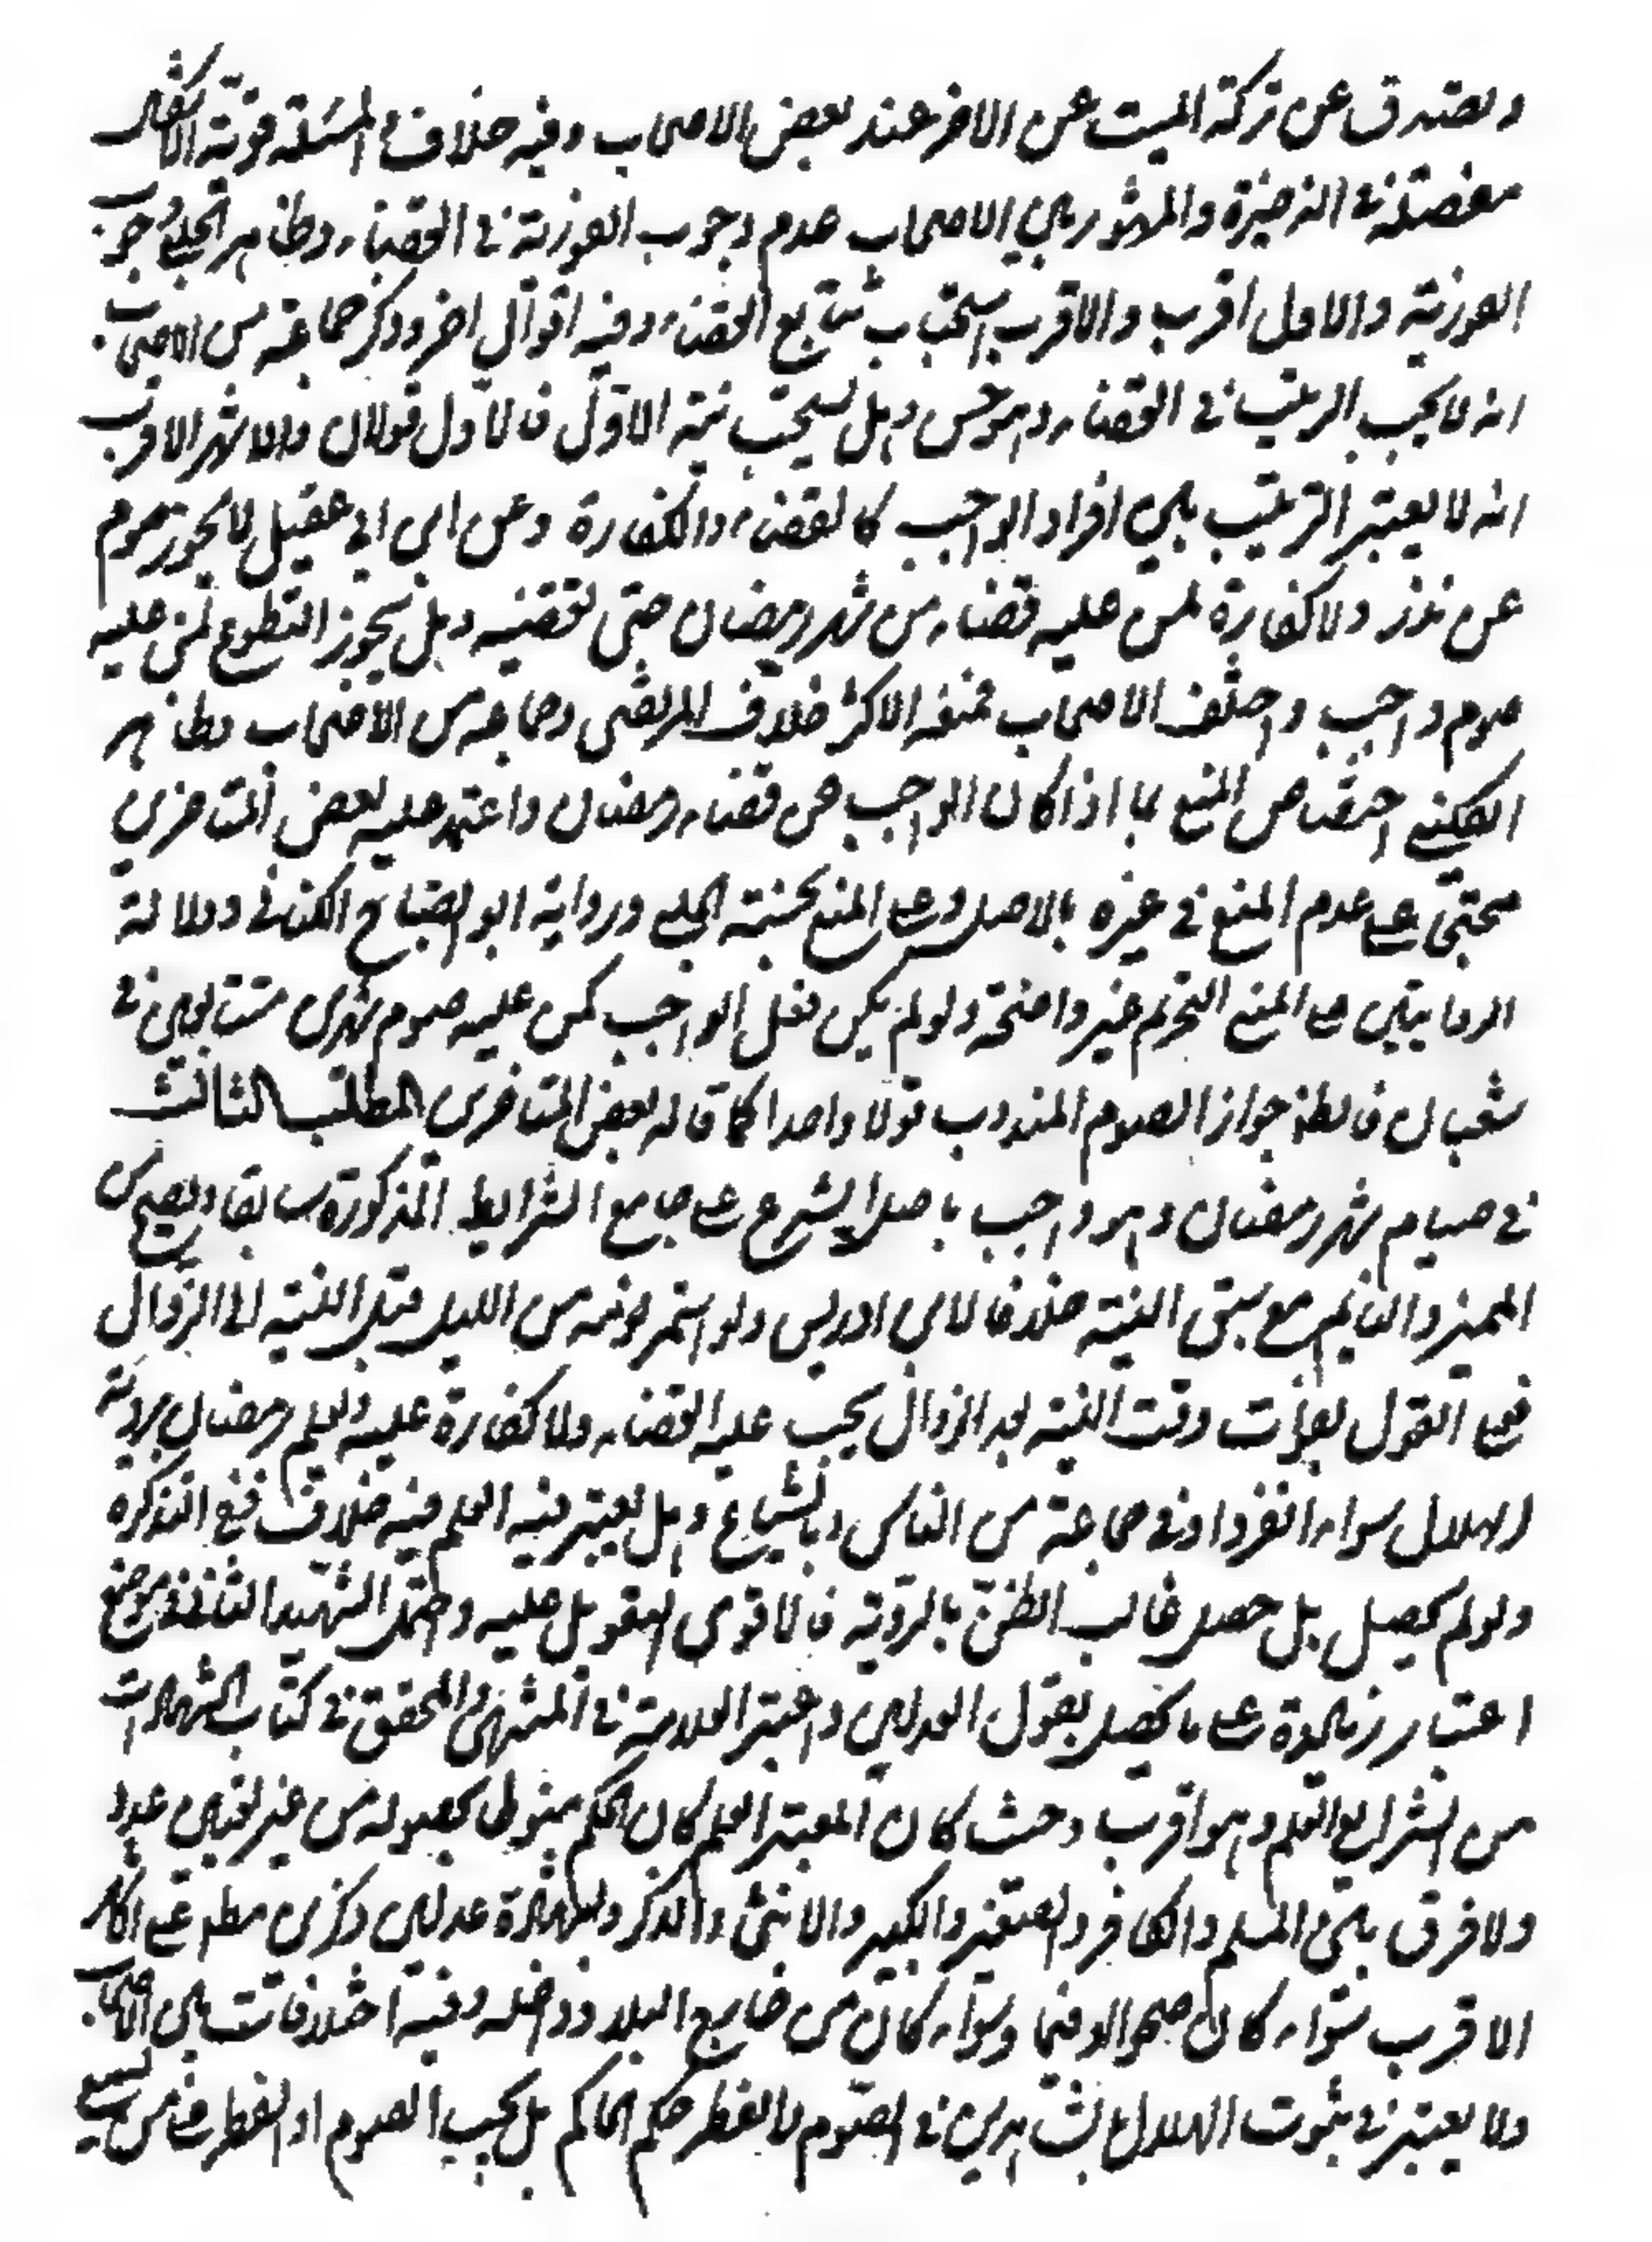 ويتصدق عن تركة الميت عن الاخر عند بعض الاصحاب وفيه خلاف والمسئلة قوية الاشكال
مفصلة في الذخيرة والمشهور بين الاصحاب عدم وجوب الفورية في القضاء وظاهر الحلبي وجوب
الفورية والاول اقرب والاقرب استحباب تتابع القضاء وفيه اقوال اخر وذكر جماعة من الاصحاب
انه لا يجب الترتيب في القضاء وهو حسن وهل يستحب نية الاول فالاول قولان والاشهر الاقرب
انه لا يعتبر الترتيب بين افراد الواجب كالقضاء والكفارة وعن ابن ابي عقيل لا يجوز صوم
عن نذر ولا كفارة لمن عليه قضاء من شهر رمضان حتى يقضيه وهل يجوز التطوع لمن عليه
صوم واجب واختلف الاصحاب فمنعه الاكثر خلافا للمرتضى وجماعة من الاصحاب وظاهر
الكليني اختصاص المنع بما اذا كان الواجب من قضاء رمضان واعتمد عليه بعض المتاخرين
محتجا على عدم المنع في غيره بالاصل وعلى المنع بحسنة الحلبي ورواية ابو الصباح الكناني ودلالة
الروايتين على المنع التحريم غير واضحة ولو لم يمكن فعل الواجب كمن عليه صوم شهرين متتابعين في
شعبان فالظ جواز الصوم المندوب قولا واحدا كما قاله بعض المتاخرين المطلب الثالث
في صيام شهر رمضان وهو واجب باصل الشرع على جامع الشرايط المذكورة سابقا ويصح من
المميز والنايم مع سبق النية خلافا لابن ادريس ولو استمر نومه من الليل قبل النية الى الزوال
فعلى القول بفوات وقت النية بعد الزوال يجب عليه القضاء ولا كفارة عليه ويعلم رمضان برؤية
الهلال سواء انفرد او في جماعة من الناس وبالشياع وهل يعتبر فيه العلم فيه خلاف ففي التذكرة
ولو لم يحصل بل حصل غالب الظن بالرؤية فالاقوى التعويل عليه واحتمل الشهيد الثاني في موضع
اعتبار زيادة على ما يحصل بقول العدلين واعتبر العلامة في المنتهى والمحقق في كتاب الشهادات
من الشرايع العلم وهو اقرب وحيث كان المعتبر العلم كان الحكم منوطا بحصوله من غير تعيين عدد
ولا فرق بين المسلم والكافر والصغير والكبير والانثى والذكر وبشهادة عدلين ذكرين مطلقا على
الاقرب سواء كان صحوا او غيما وسواء كان من خارج البلد وداخله وفيه اختلافات بين الاصحاب
ولا يعتبر في ثبوت الهلال بالشاهدين في الصوم والفطر حكم الحاكم بل يجب الصوم او الفطر على من